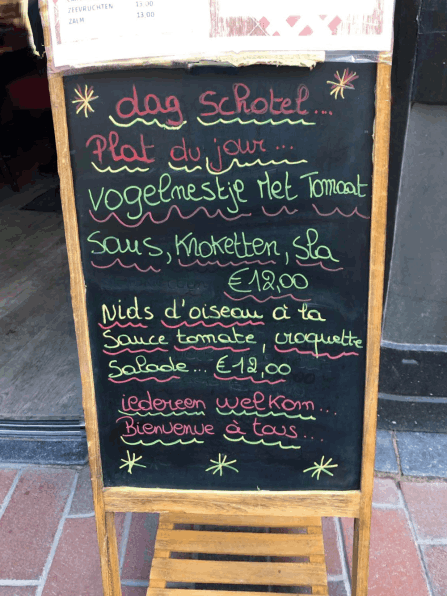 ZEEVRUCHTEN 13.00
ZALM 13.00
dag schotel...
Plat du jour...
vogelnestje Met Tomaat
saus, Kroketten, sla
€12,00
Nids d'oiseau à la
sauce tomate, croquette
salade... €12,00
iedereen welkom...
Bienvenue à tous...